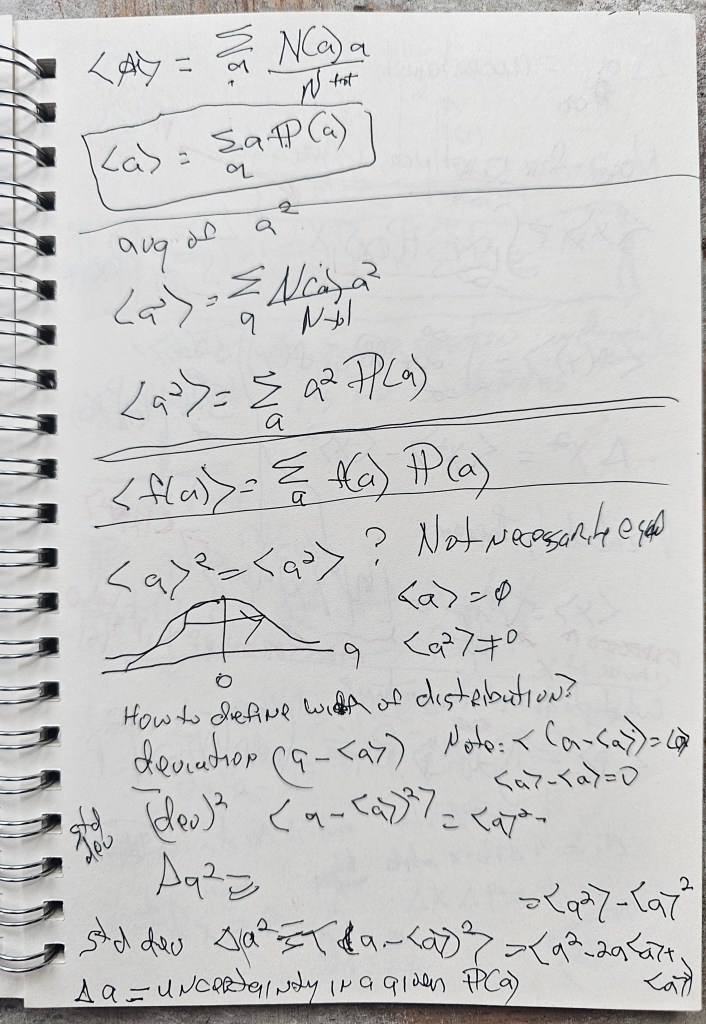 <A> = Σ_a N(a) a / N^tot
<a> = Σ_a a ℙ(a)
avg of a²
<a²> = Σ_a N(a) a² / N tot
<a²> = Σ_a a² ℙ(a)
<f(a)> = Σ_a f(a) ℙ(a)
<a>² = <a²> ? Not necessarily equal
<a> = 0
<a²> ≠ 0
a
0
How to define width of distribution?
deviation (a - <a>) Note: < (a - <a>) =
<a> - <a> = 0
std dev (dev)² < a - <a>)²> = <a>² -
Δa² ≡
= <a²> - <a>²
std dev Δa² ≡ < (a - <a>)²> = <a² - 2a<a> +
<a>
Δa = uncertainty in a given ℙ(a)